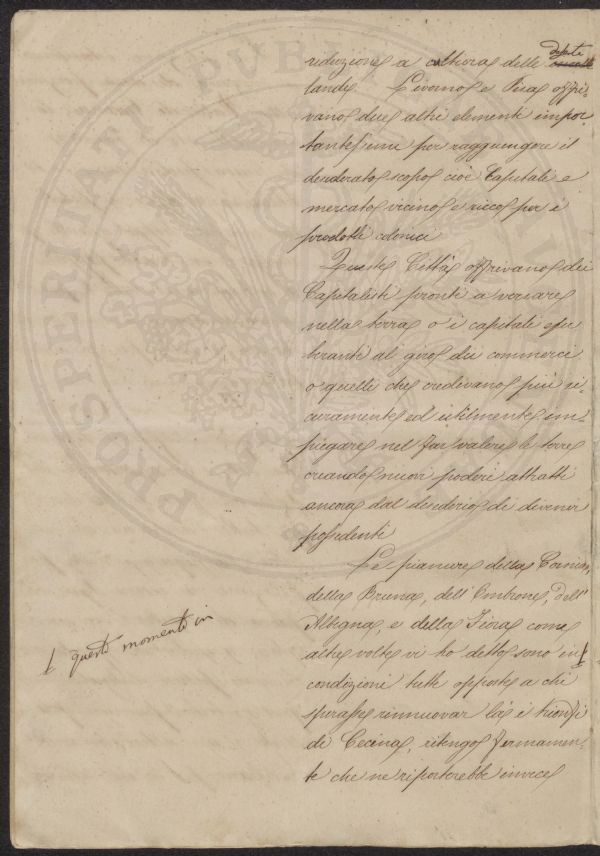 riduzione a coltura delle dette
lande. Livorno e Pisa offri-
vano due altri elementi impor
tantissimi per raggiungere il
desiderato scopo cioè Capitali e
mercato vicino e ricco per i
prodotti colonici
Queste Città offrivano dei
Capitalisti pronti a versare
nella terra o i capitali esu
beranti al giro dei commerci
o quelli che credivano più si-
curamente ed utilmente im-
piegare nel far valere le terre
creando nuovi poderi attratti
ancora dal desiderio di divenir
possidenti
Le pianure della Cornia,
della Bruna, dell' Ombrone, dell'
Albegna, e della Fiora come
altre volte vi ho detto sono in
questo momento in
condizioni tutte opposte a chi
sperasse rinnuovar là i trionfi
di Cecina, ritengo fermamen-
te che ne riporterebbe invece
PROSPERITATI PUBLICAE